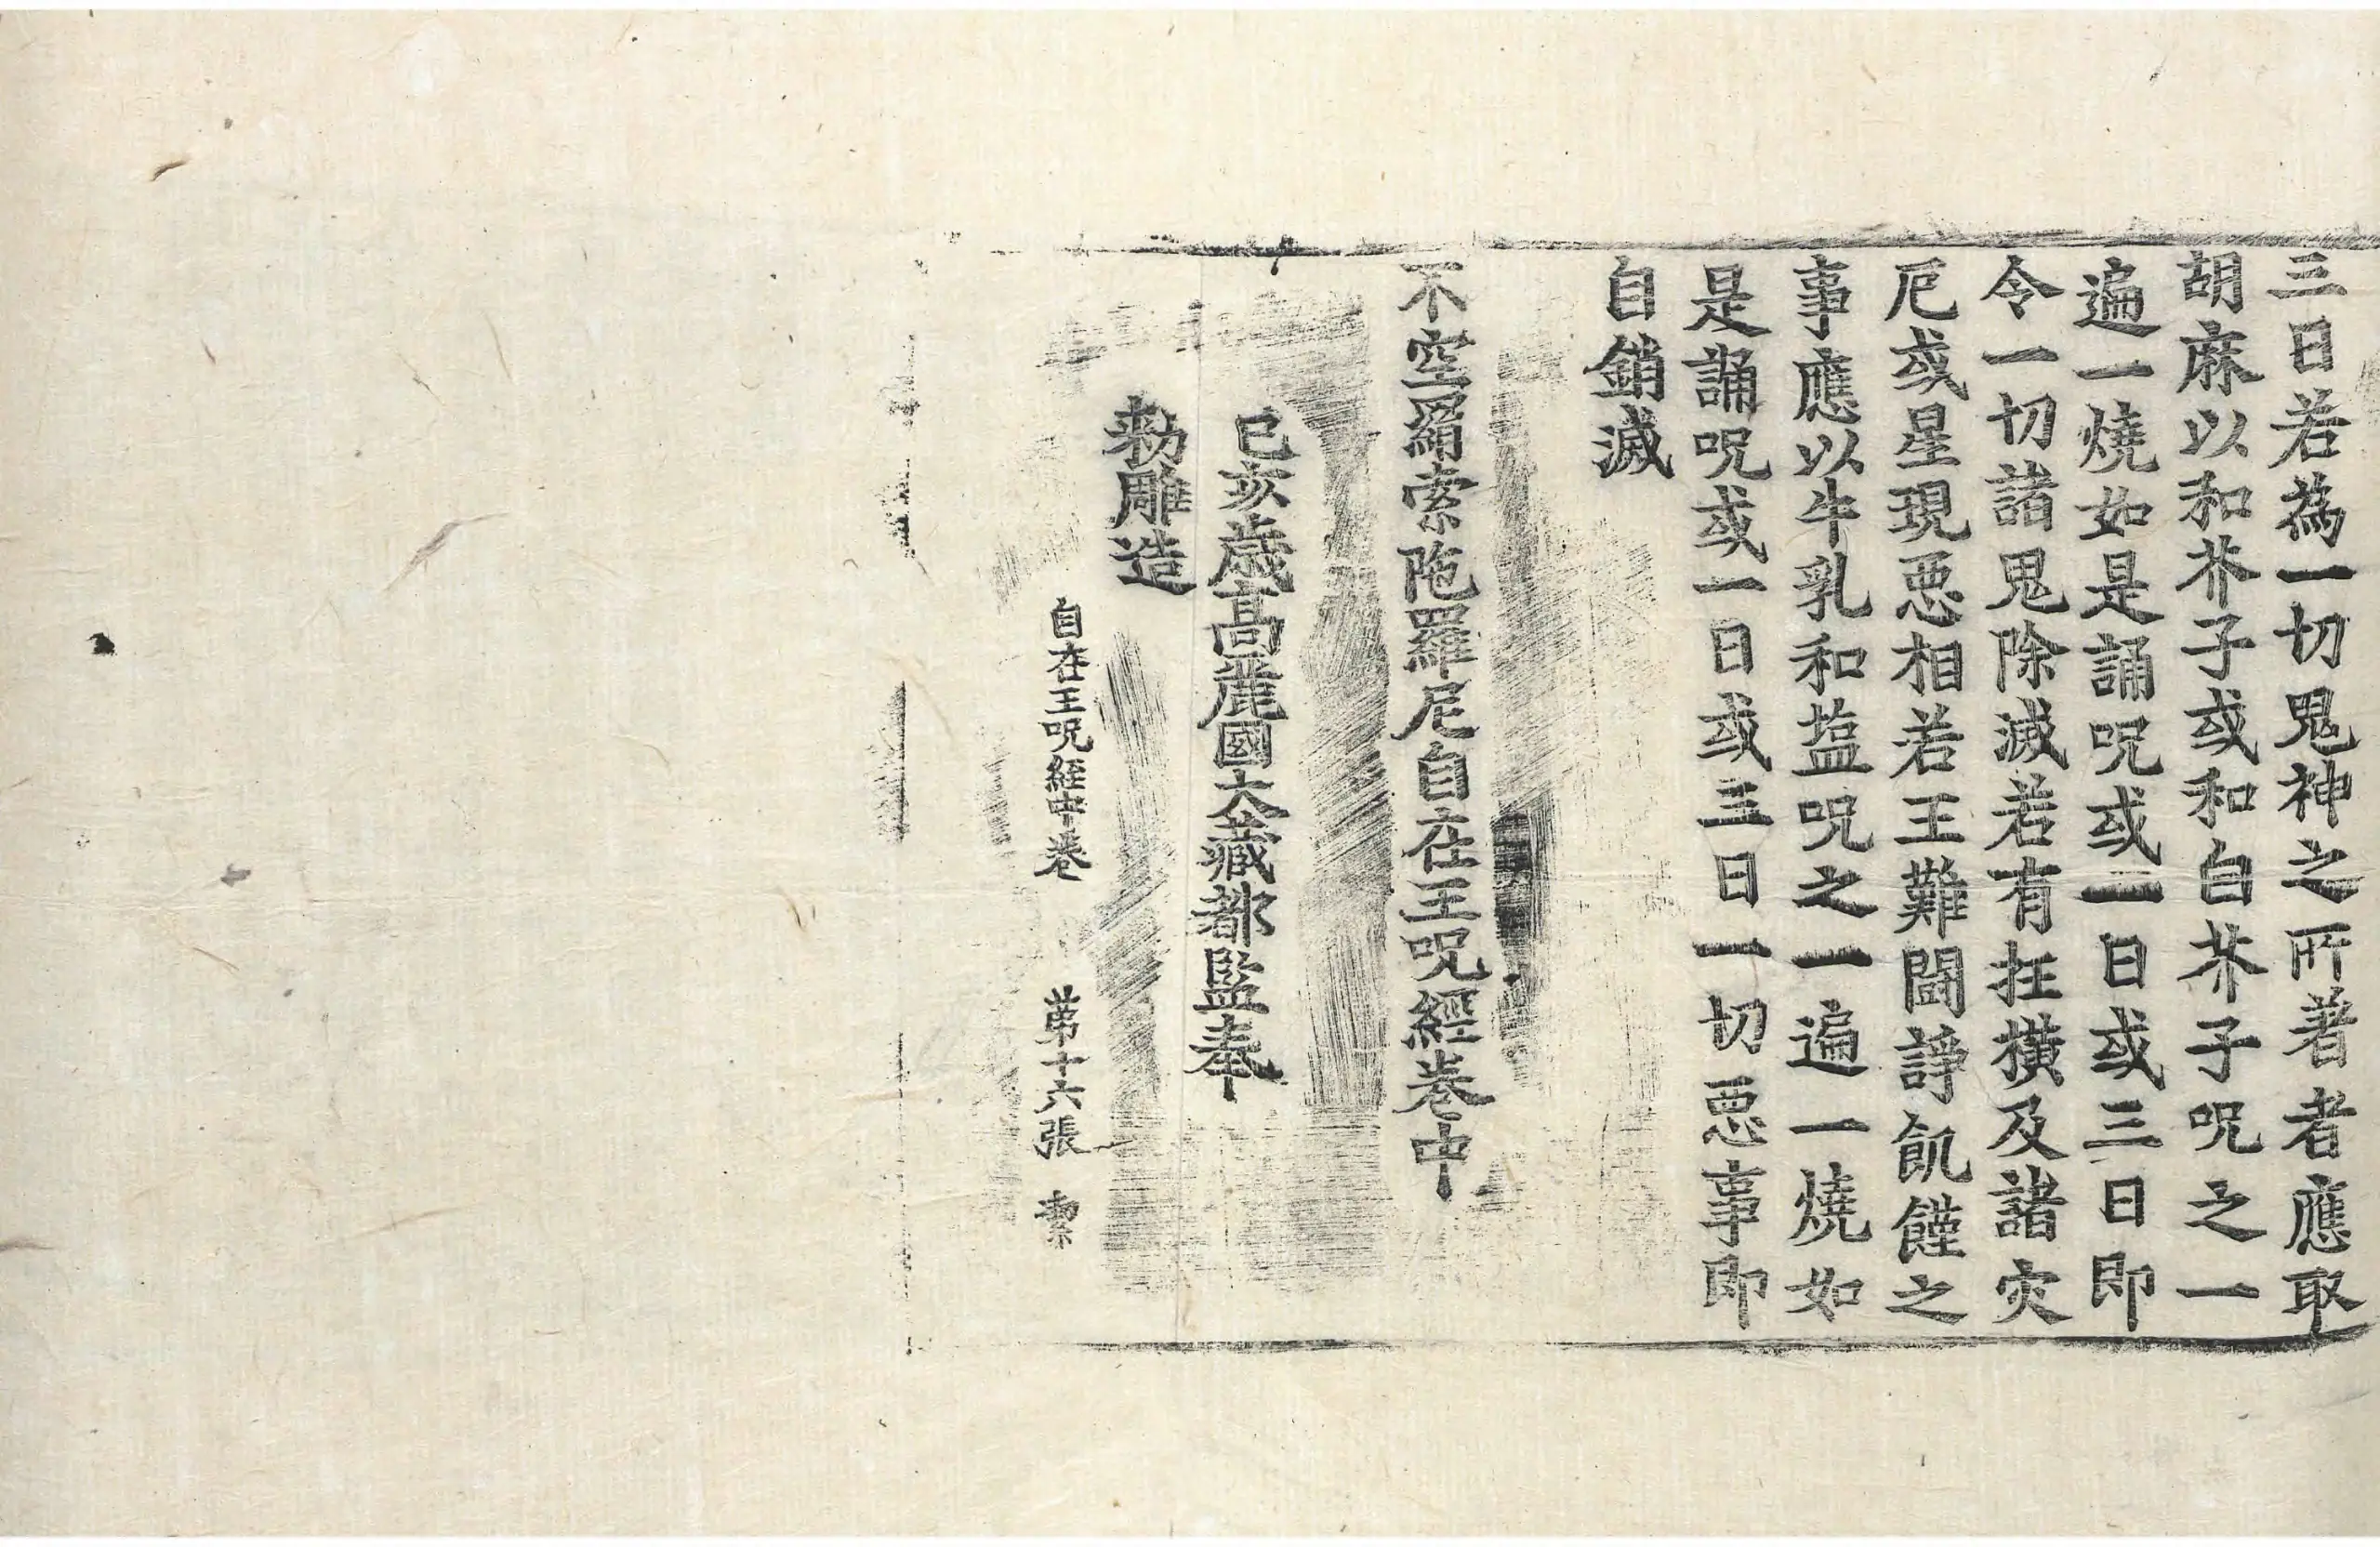 三日若為一切鬼神之所著者應取
胡麻以和芥子或和白芥子呪之一
遍一燒如是誦呪或一日或三日即
令一切諸鬼除滅若有抂橫及諸灾
厄或星現惡相若王難鬪諍飢饉之
事應以牛乳和塩呪之一遍一燒如
是誦呪或一日或三日一切惡事即
自銷滅
不空羂索陁羅尼自在王呪經卷中
己亥歳高麗國大藏都監奉
勑雕造
自在王呪經中卷 苐十六張 潔